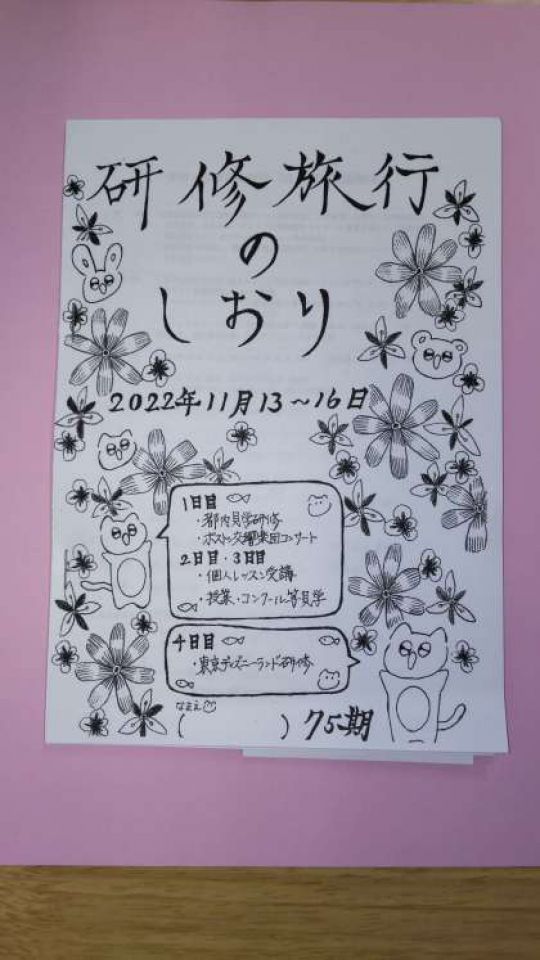 研修旅行
の
しおり
2022年11月13～16日
1日目
・都内見学研修
・ボストン交響楽団コンサート
2日目・3日目
・個人レッスン受講
・授業・コンクール等見学
4日目
・東京ディズニーランド研修
なまえ
(　　　　) 75期